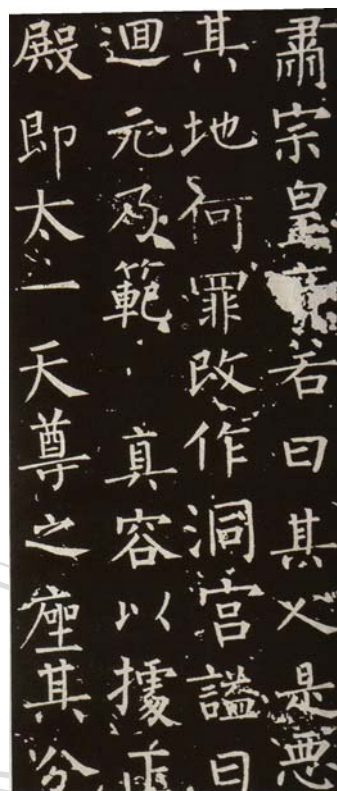 肅宗皇帝若曰其人是惡
其地何罪改作洞宮謚曰
迴元乃範真容以據正
殿即太一天尊之座其分